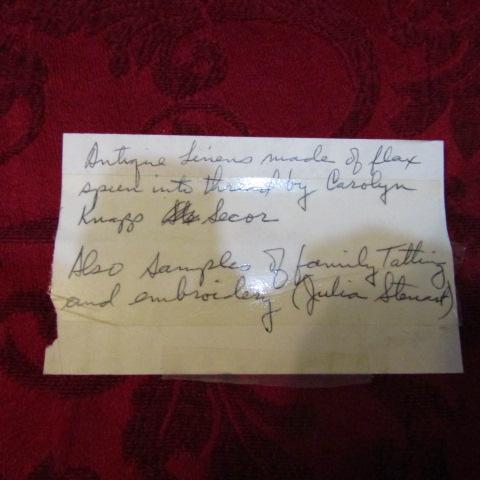 Antique Linens made of flax
spun into thread by Carolyn
Knapp Secor
Also samples of family Tatting
and embroidery (Julia Stewart)